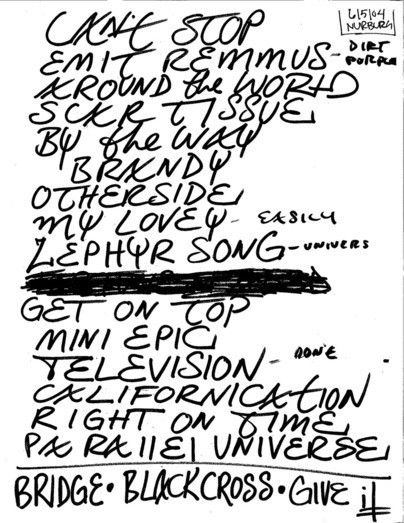 6/5/04
NURBURG
CAN'T STOP
EMIT REMMUS- DIRT
PURPLE
AROUND the WORLD
SCAR TISSUE
BY the WAY
BRANDY
OTHERSIDE
MY LOVEY- EASILY
ZEPHYR SONG-UNIVERS
GET ON TOP
MINI EPIC
TELEVISION- DONE
CALIFORNICATION
RIGHT ON TIME
PARALLEL UNIVERSE
BRIDGE • BLACKCROSS • GIVE it